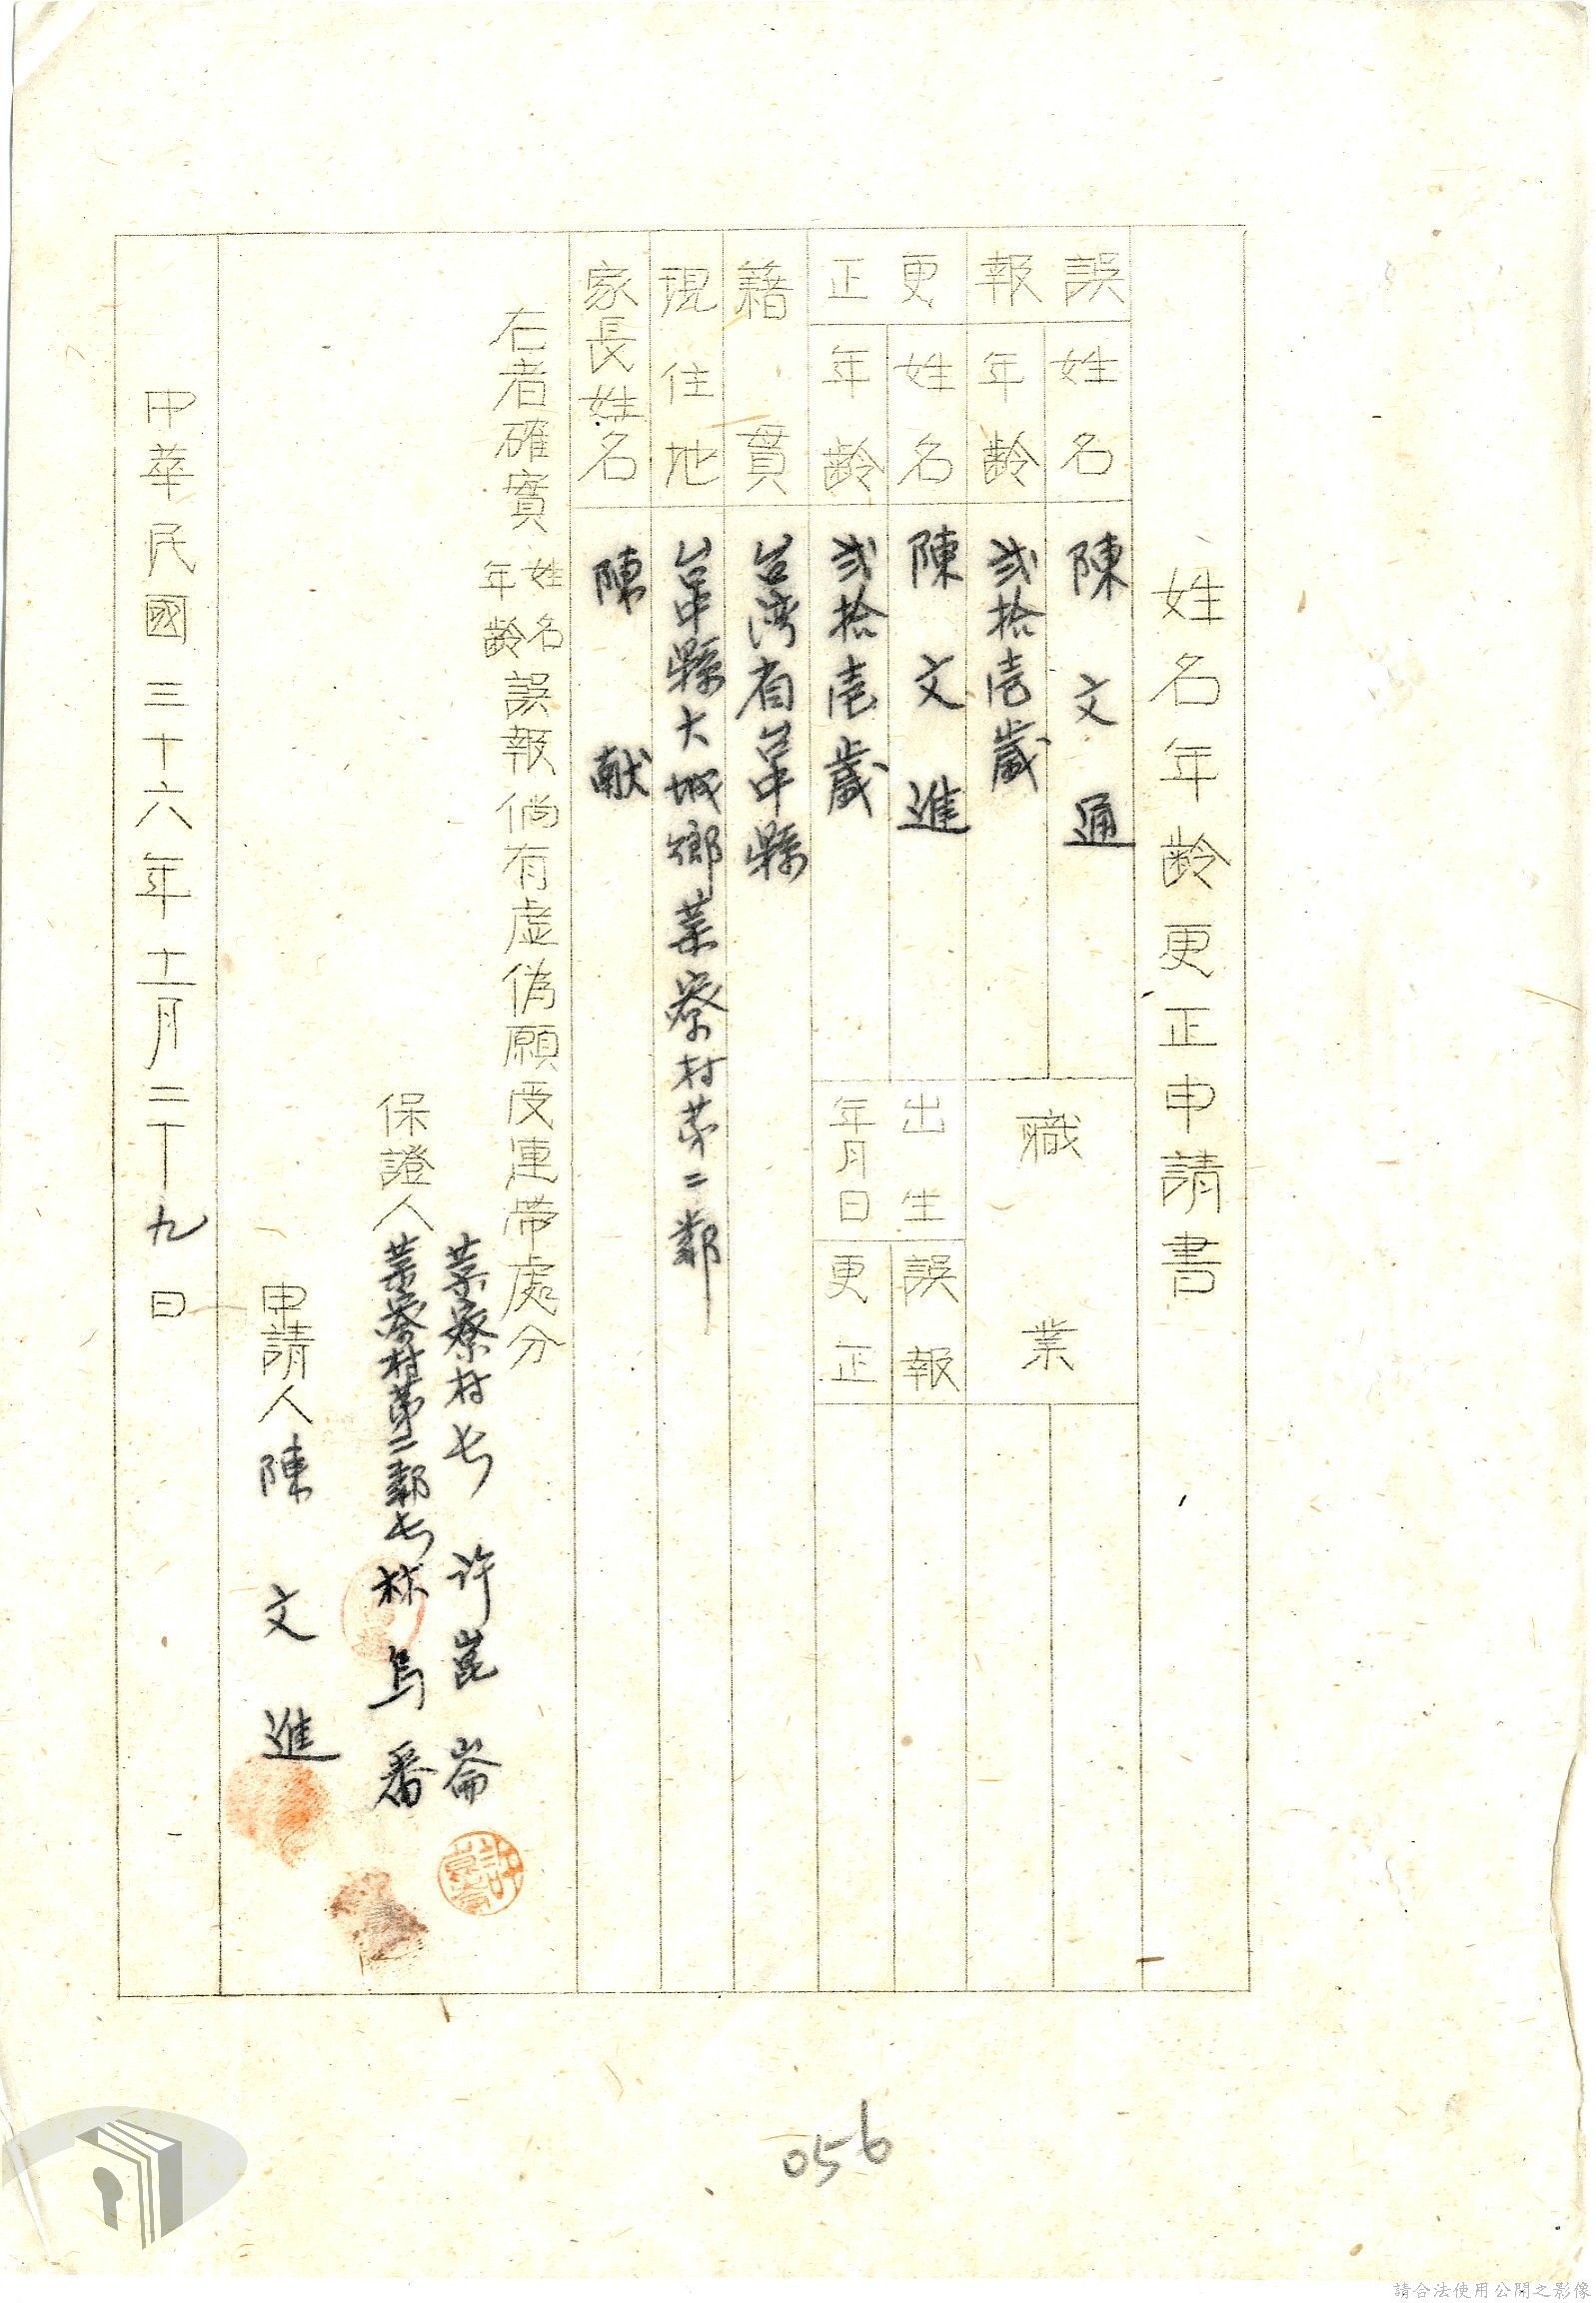 姓名年齡更正申請書
誤報
姓名 陳文通
年齡 弍拾壱歲
職業
更正
姓名 陳文進
年齡 弍拾壱歲
出生年月日
誤報
更正
籍貫 台湾省台中縣
現住地 台中縣大城鄉菜寮村第二鄰
家長姓名 陳献
右者確實姓名年齡誤報倘有虛偽願受連帶處分
保證人
菜寮村長 许崑崙
菜寮村第二鄰長 林烏番
申請人 陳文進
中華民國三十六年十一月二十九日
056
請合法使用公開之影像